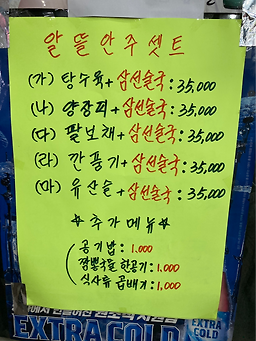 알뜰안주셋트
(가) 탕수육+삼선술국:35,000
(나) 양장피+삼선술국:35,000
(다) 팔보채+삼선술국:35,000
(라) 깐풍기+삼선술국:35,000
(마) 유산슬+삼선술국:35,000
추가메뉴
공기밥: 1,000
짬뽕국물 한공기: 1,000
식사류 곱배기: 1,000
EXTRA COLD